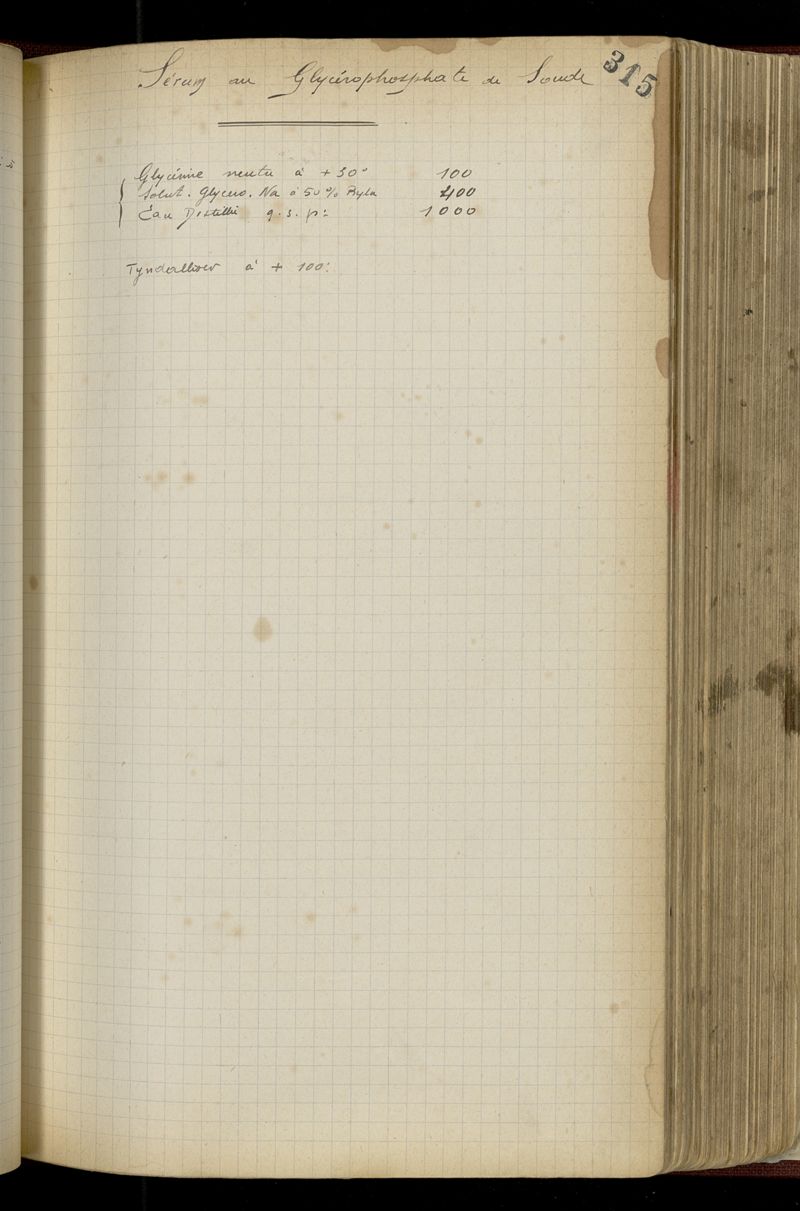 315
Sérum au Glycérophosphate de Soude
Glycérine neutre à + 30° 100
Solut. Glycero. Na à 50% Byla 400
Eau Distillée q.s. pr 1000
Tyndalliser à + 100°